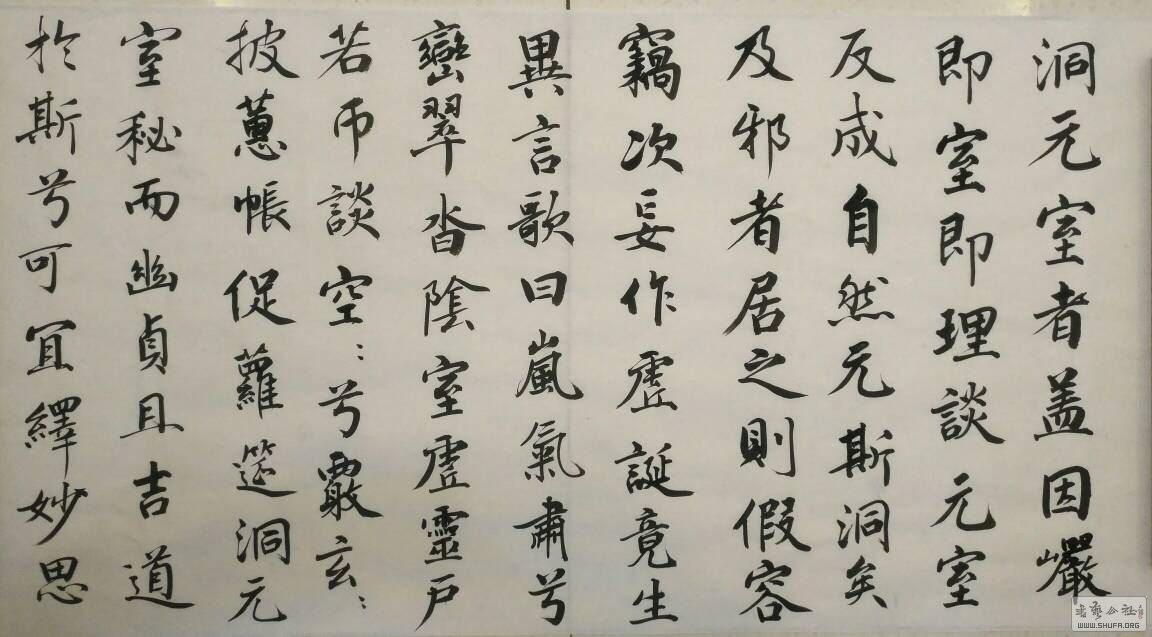 洞元室者盖因巖
即室即理談元室
反成自然元斯洞矣
及邪者居之則假容
竊次妄作虗誕竟生
異言歌曰嵐氣肅兮
巒翠沓陰室虗靈戶
若帀談空：兮覈玄：
披蕙帳促蘿筵洞元
室秘而幽貞且吉道
於斯兮可冝繹妙思
書藝公社
WWW.SHUFA.ORG